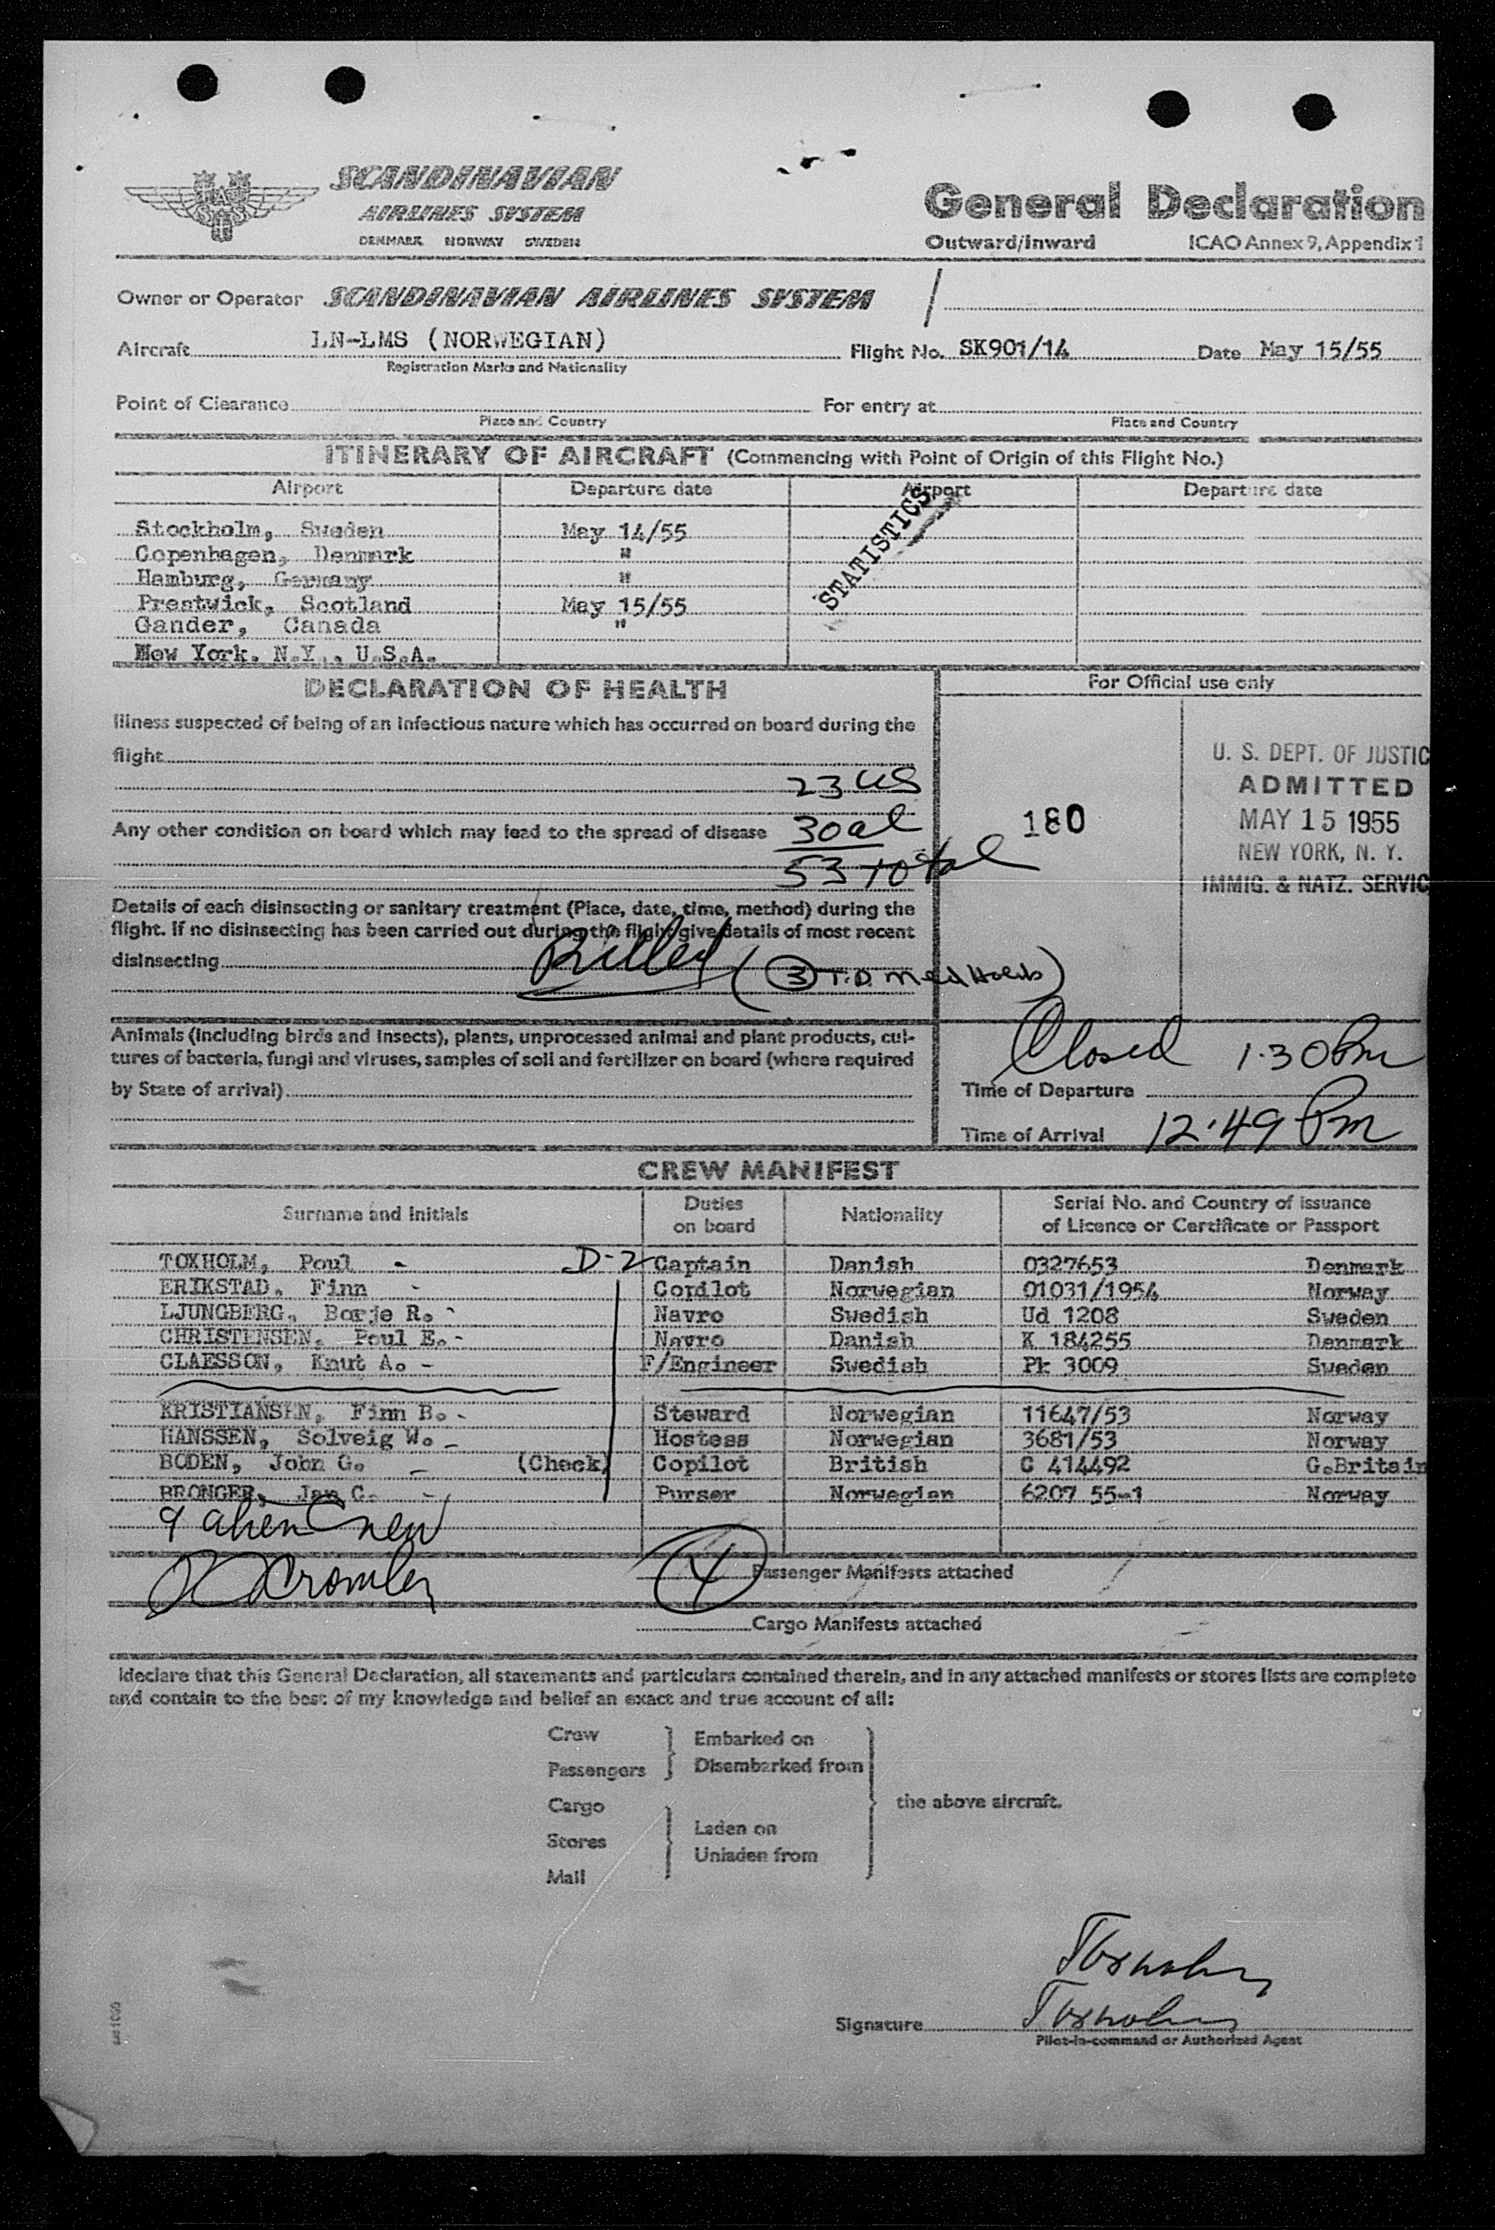 SCANDINAVIAN
AIRLINES SYSTEM
DENMARK NORWAY SWEDEN
General Declaration
Outward/Inward ICAO Annex 9, Appendix 1
Owner or Operator SCANDINAVIAN AIRLINES SYSTEM
Aircraft LN-LMS (NORWEGIAN) Flight No. SK901/14 Date May 15/55
Registration Marks and Nationality
Point of Clearance For entry at
Place and Country Place and Country
ITINERARY OF AIRCRAFT (Commencing with Point of Origin of this Flight No.)
Airport Departure date Airport Departure date
STATISTICS
Stockholm, Sweden May 14/55
Copenhagen, Denmark "
Hamburg, Germany "
Prestwick, Scotland May 15/55
Gander, Canada "
New York. N.Y., U.S.A.
DECLARATION OF HEALTH
For Official use only
Illness suspected of being of an infectious nature which has occurred on board during the
flight
23 US
Any other condition on board which may lead to the spread of disease 30 al
53 total
180
U. S. DEPT. OF JUSTIC
ADMITTED
MAY 15 1955
NEW YORK, N. Y.
IMMIG. & NATZ. SERVIC
Details of each disinsecting or sanitary treatment (Place, date, time, method) during the
flight. If no disinsecting has been carried out during the flight give details of most recent
disinsecting
(3 T.D. Med Holds)
Animals (including birds and insects), plants, unprocessed animal and plant products, cul-
tures of bacteria, fungi and viruses, samples of soil and fertilizer on board (where required
by State of arrival)
Closed 1.30 Pm
Time of Departure
Time of Arrival 12.49 Pm
CREW MANIFEST
Surname and Initials Duties on board Nationality Serial No. and Country of Issuance of Licence or Certificate or Passport
TOXHOLM, Poul - D-2 Captain Danish 0327653 Denmark
ERIKSTAD, Finn - Copilot Norwegian 01031/1954 Norway
LJUNGBERG, Borje R. - Navro Swedish Ud 1208 Sweden
CHRISTENSEN, Poul E. - Navro Danish K 184255 Denmark
CLAESSON, Knut A. - F/Engineer Swedish Pk 3009 Sweden
KRISTIANSEN, Finn B. - Steward Norwegian 11647/53 Norway
HANSSEN, Solveig W. - Hostess Norwegian 3681/53 Norway
BODEN, John G. - (Check) Copilot British C 414492 G.Britain
BRONGER, Jan C. - Purser Norwegian 6207 55-1 Norway
9 alien crew
4 Passenger Manifests attached
Cargo Manifests attached
I declare that this General Declaration, all statements and particulars contained therein, and in any attached manifests or stores lists are complete
and contain to the best of my knowledge and belief an exact and true account of all:
Crew
Passengers
Embarked on
Disembarked from
Cargo
Stores
Mail
Laden on
Unladen from
the above aircraft.
Toxholm
Signature Toxholm
Pilot-in-command or Authorized Agent